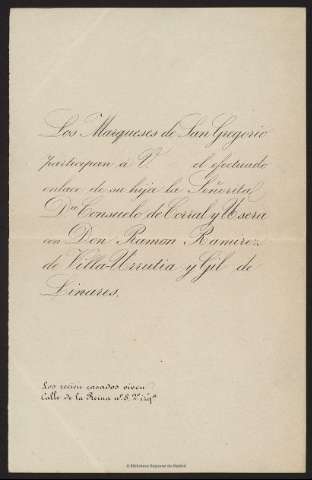 Los Marqueses de San Gregorio
participan á V. el efectuado
enlace de su hija la Señorita
Dª Consuelo de Corral y Usera
con Don Ramon Ramirez
de Villa-Urrutia y Gil de
Linares.
Los recien casados viven
Calle de la Reina nº 8. 2º izqª
© Biblioteca Regional de Madrid